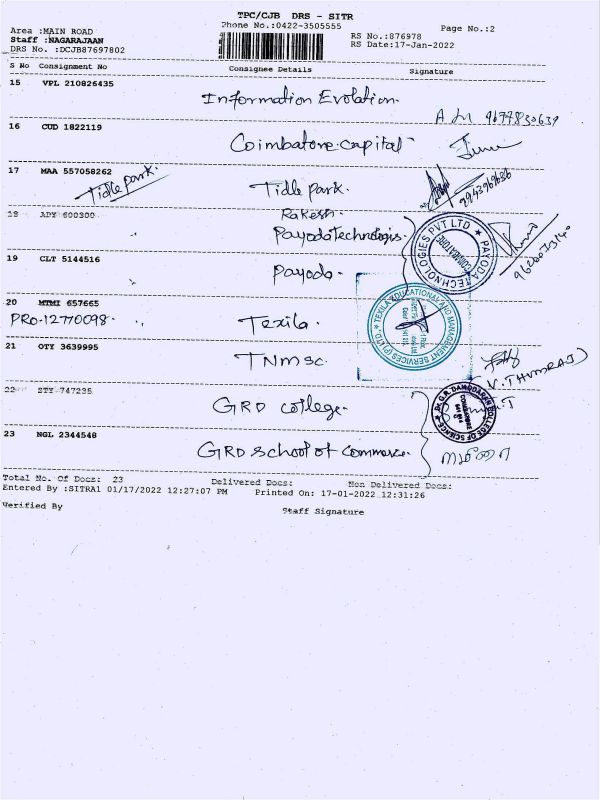 TPC/CJB DRS - SITR
Area :MAIN ROAD Phone No.:0422-3505555 Page No.:2
Staff :NAGARAJAAN RS No.:876978
DRS No. :DCJB87697802 RS Date:17-Jan-2022
S No Consignment No Consignee Details Signature
15 VPL 210826435
Information Evolation.
A.M 9677830639
16 CUD 1822119
Coimbatore capital
17 MAA 557058262
Tidle park. Tidle park.
9943969686
18 ADY 600300 Rakesh.
Payoda Technologis.
PAYODA TECHNOLOGIES PVT LTD
COIMBATORE
19 CLT 5144516
Payoda.
20 MTMI 657665
PRO.12770098. Texila.
TEXILA EDUCATIONAL AND MANAGEMENT SERVICES (P) LTD.
21 OTY 3639995
TNMSC.
22 STY 747235
GRD college.
Dr. G.R. DAMODARAN COLLEGE OF SCIENCE
COIMBATORE
641 014
23 NGL 2344548
GRD school of Commerce.
Total No. Of Docs: 23 Delivered Docs: Non Delivered Docs:
Entered By :SITRA1 01/17/2022 12:27:07 PM Printed On: 17-01-2022 12:31:26
Verified By Staff Signature